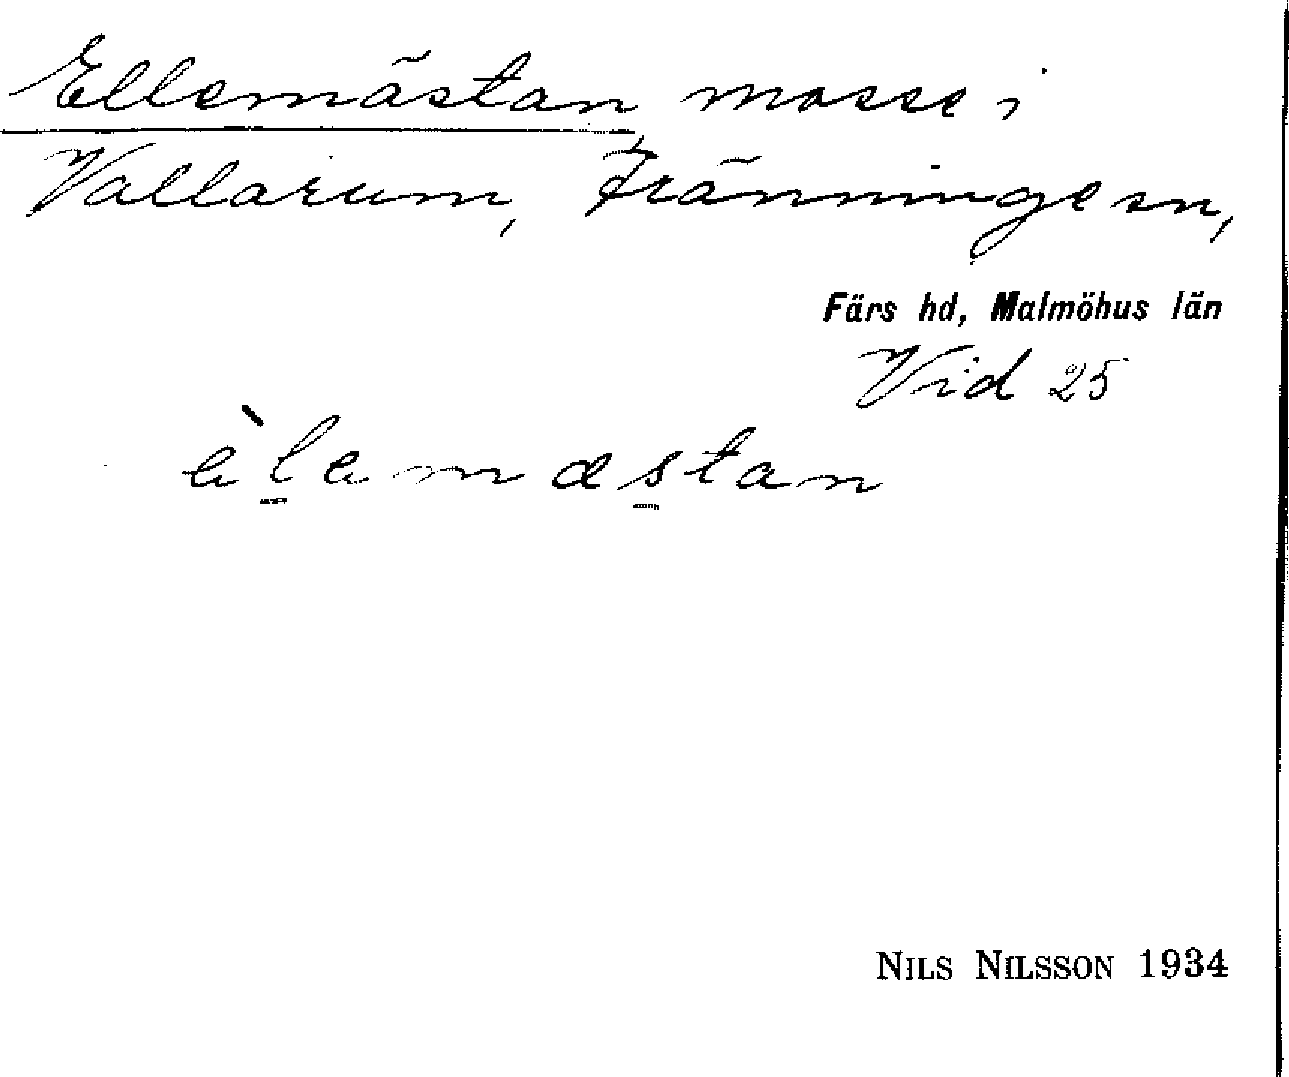 Ellemästan, mosse i
Vallarum, Fränninge sn,
Färs hd, Malmöhus län
Vid 25
èlemæstan
NILS NILSSON 1934